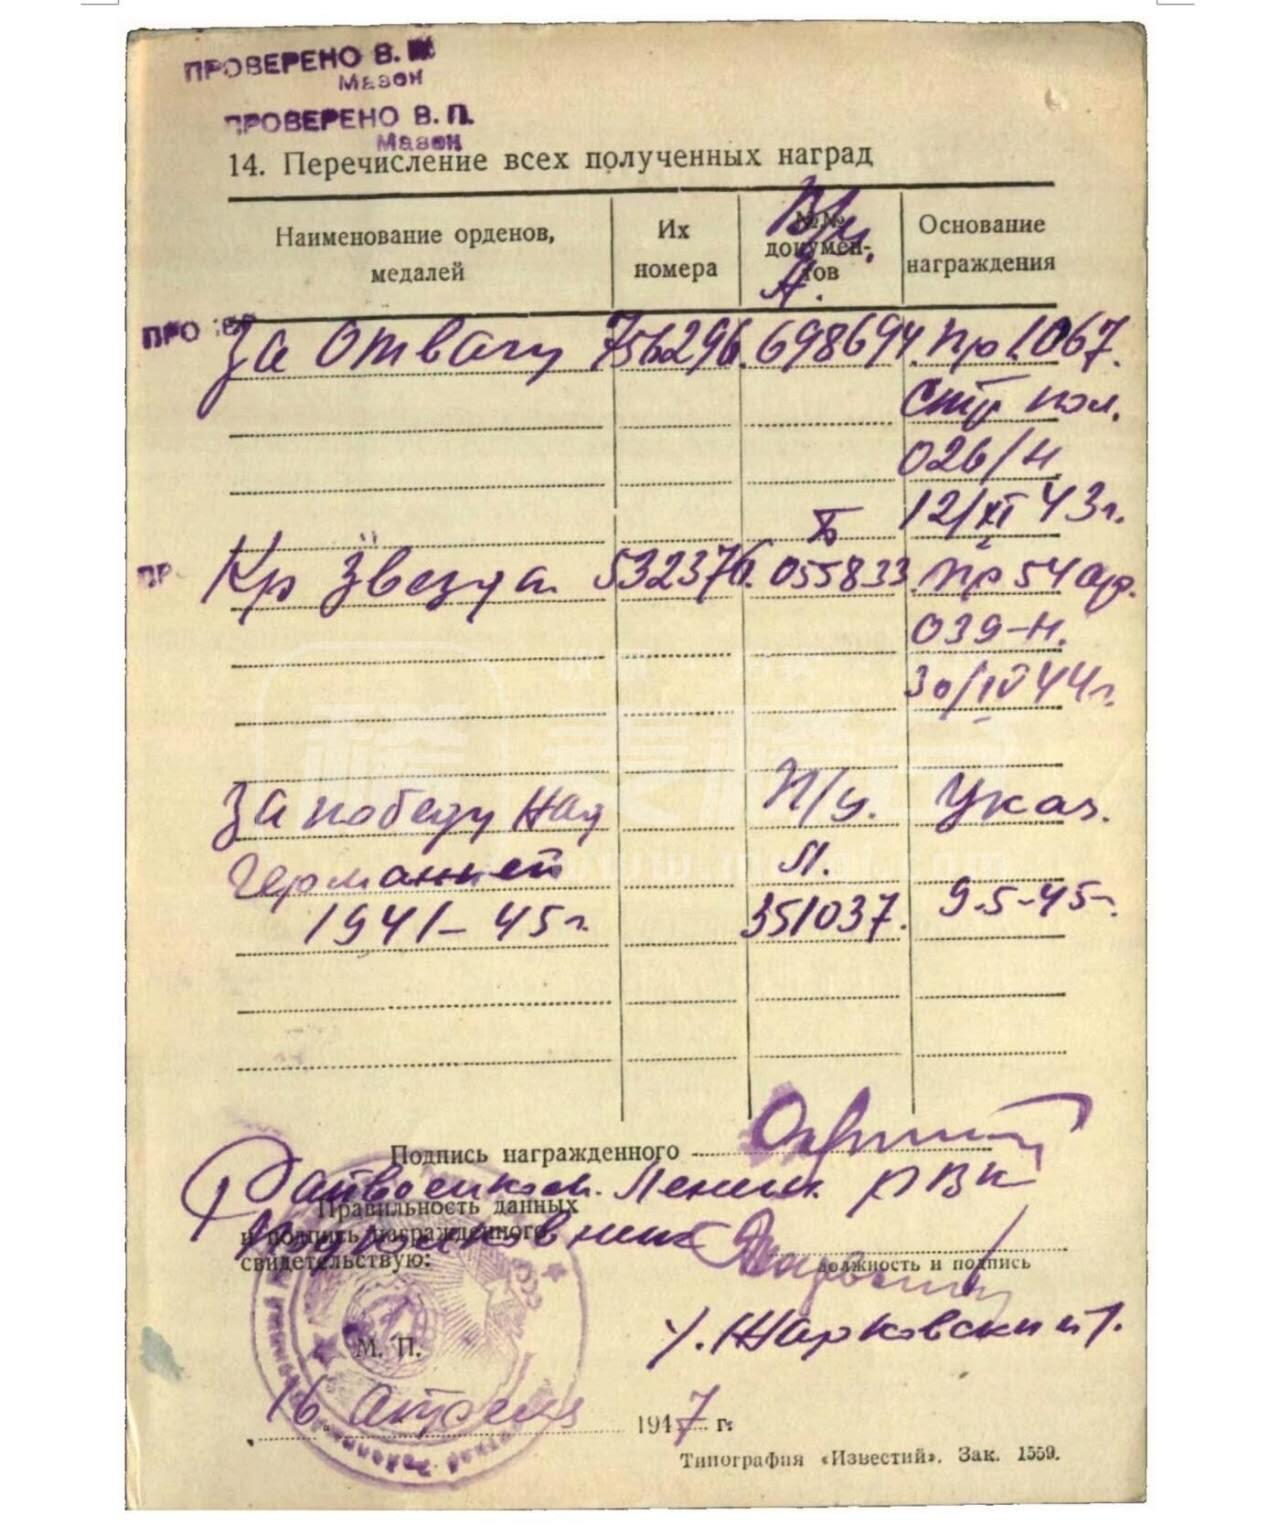 ПРОВЕРЕНО В.
Мазон
ПРОВЕРЕНО В. П.
Мазон
14. Перечисление всех полученных наград
Наименование орденов, медалей
Их номера
№№ документов
Основание награждения
В/и.
А.
ПРО ВЕР
За Отвагу 756296. 698694. Пр 1067.
Стр пол.
026/н
12/XI 43 г.
ПР
Б
Кр Звезда 532376. 055833. Пр 54 ар.
039-н.
30/IV 44 г.
За победу над П/у. Указ.
Германией Л.
1941-45 г. 351037. 9-5-45 г.
Подпись награжденного
Райвоенком. Ленинск РВК
Правильность данных
и подпись награжденного
свидетельствую:
Подполковник
должность и подпись
/. Жарковский/.
М. П.
16 апреля 1947 г.
Типография «Известий». Зак. 1559.